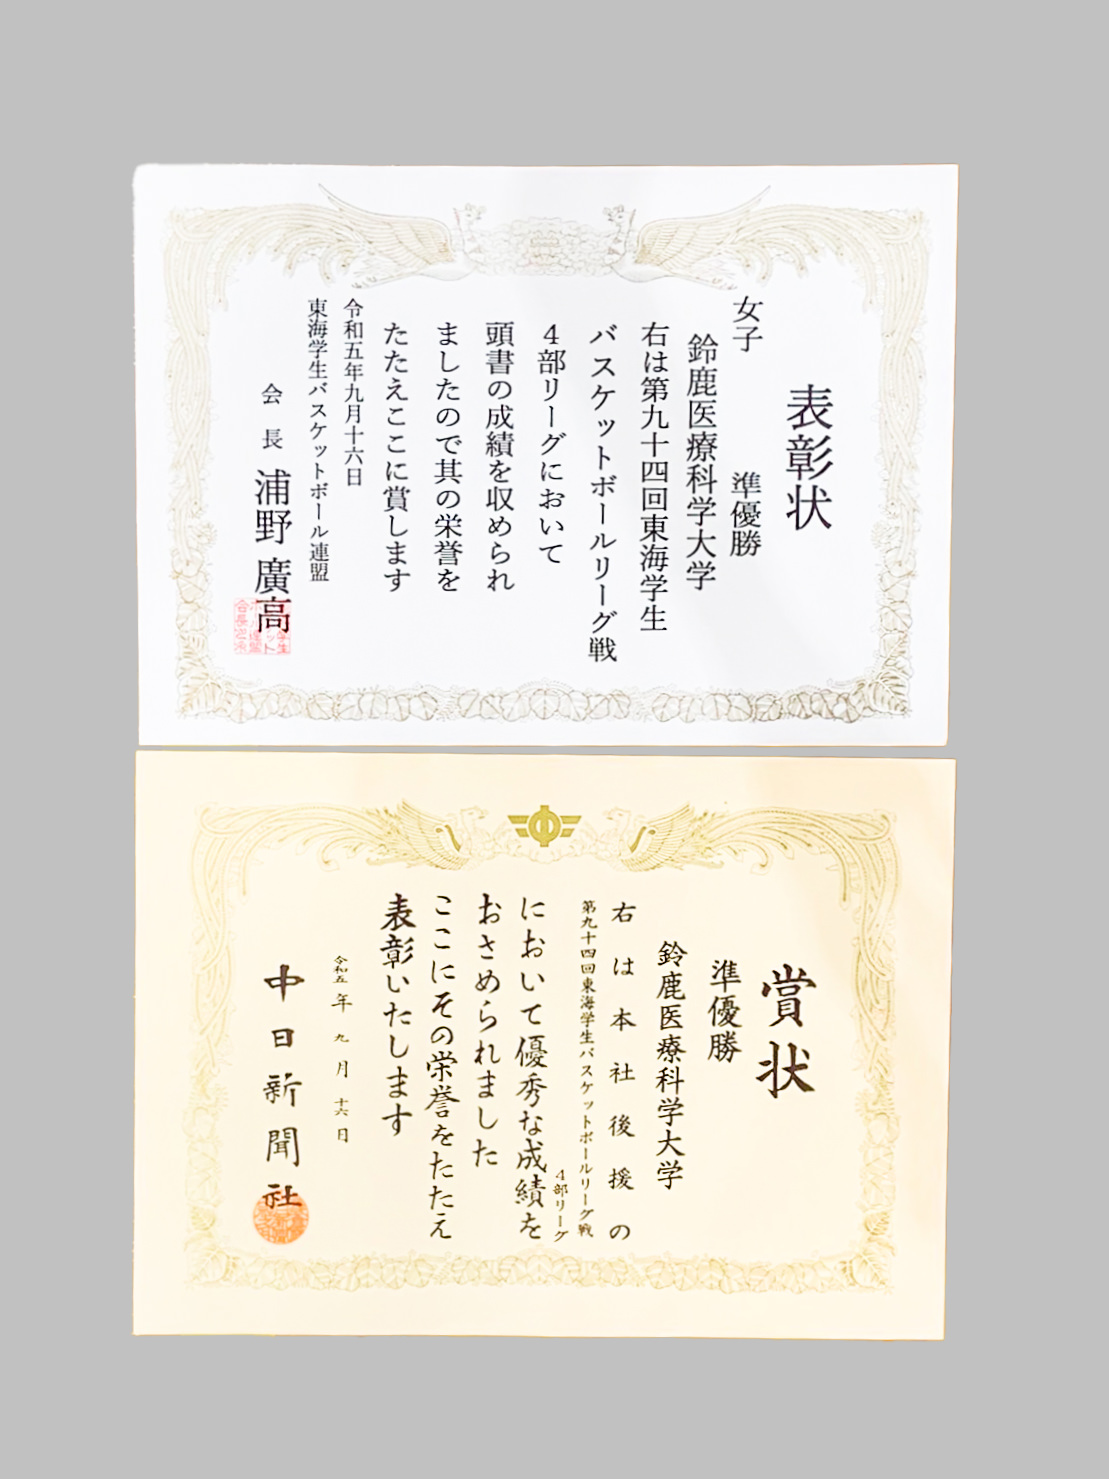 表彰状
女子 準優勝
鈴鹿医療科学大学
右は第九十四回東海学生
バスケットボールリーグ戦
４部リーグにおいて
頭書の成績を収められ
ましたので其の栄誉を
たたえここに賞します
令和五年九月十六日
東海学生バスケットボール連盟
会長 浦野廣高
賞状
準優勝
鈴鹿医療科学大学
右は本社後援の
第九十四回東海学生バスケットボールリーグ戦
４部リーグ
において優秀な成績を
おさめられました
ここにその栄誉をたたえ
表彰いたします
令和五年九月十六日
中日新聞社